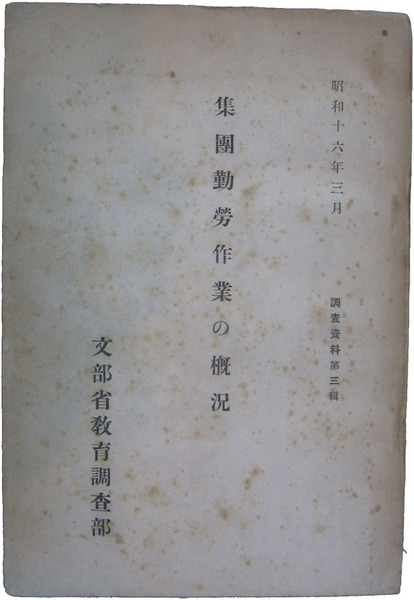 昭和十六年三月
調査資料第三輯
集團勤勞作業の概況
文部省教育調査部